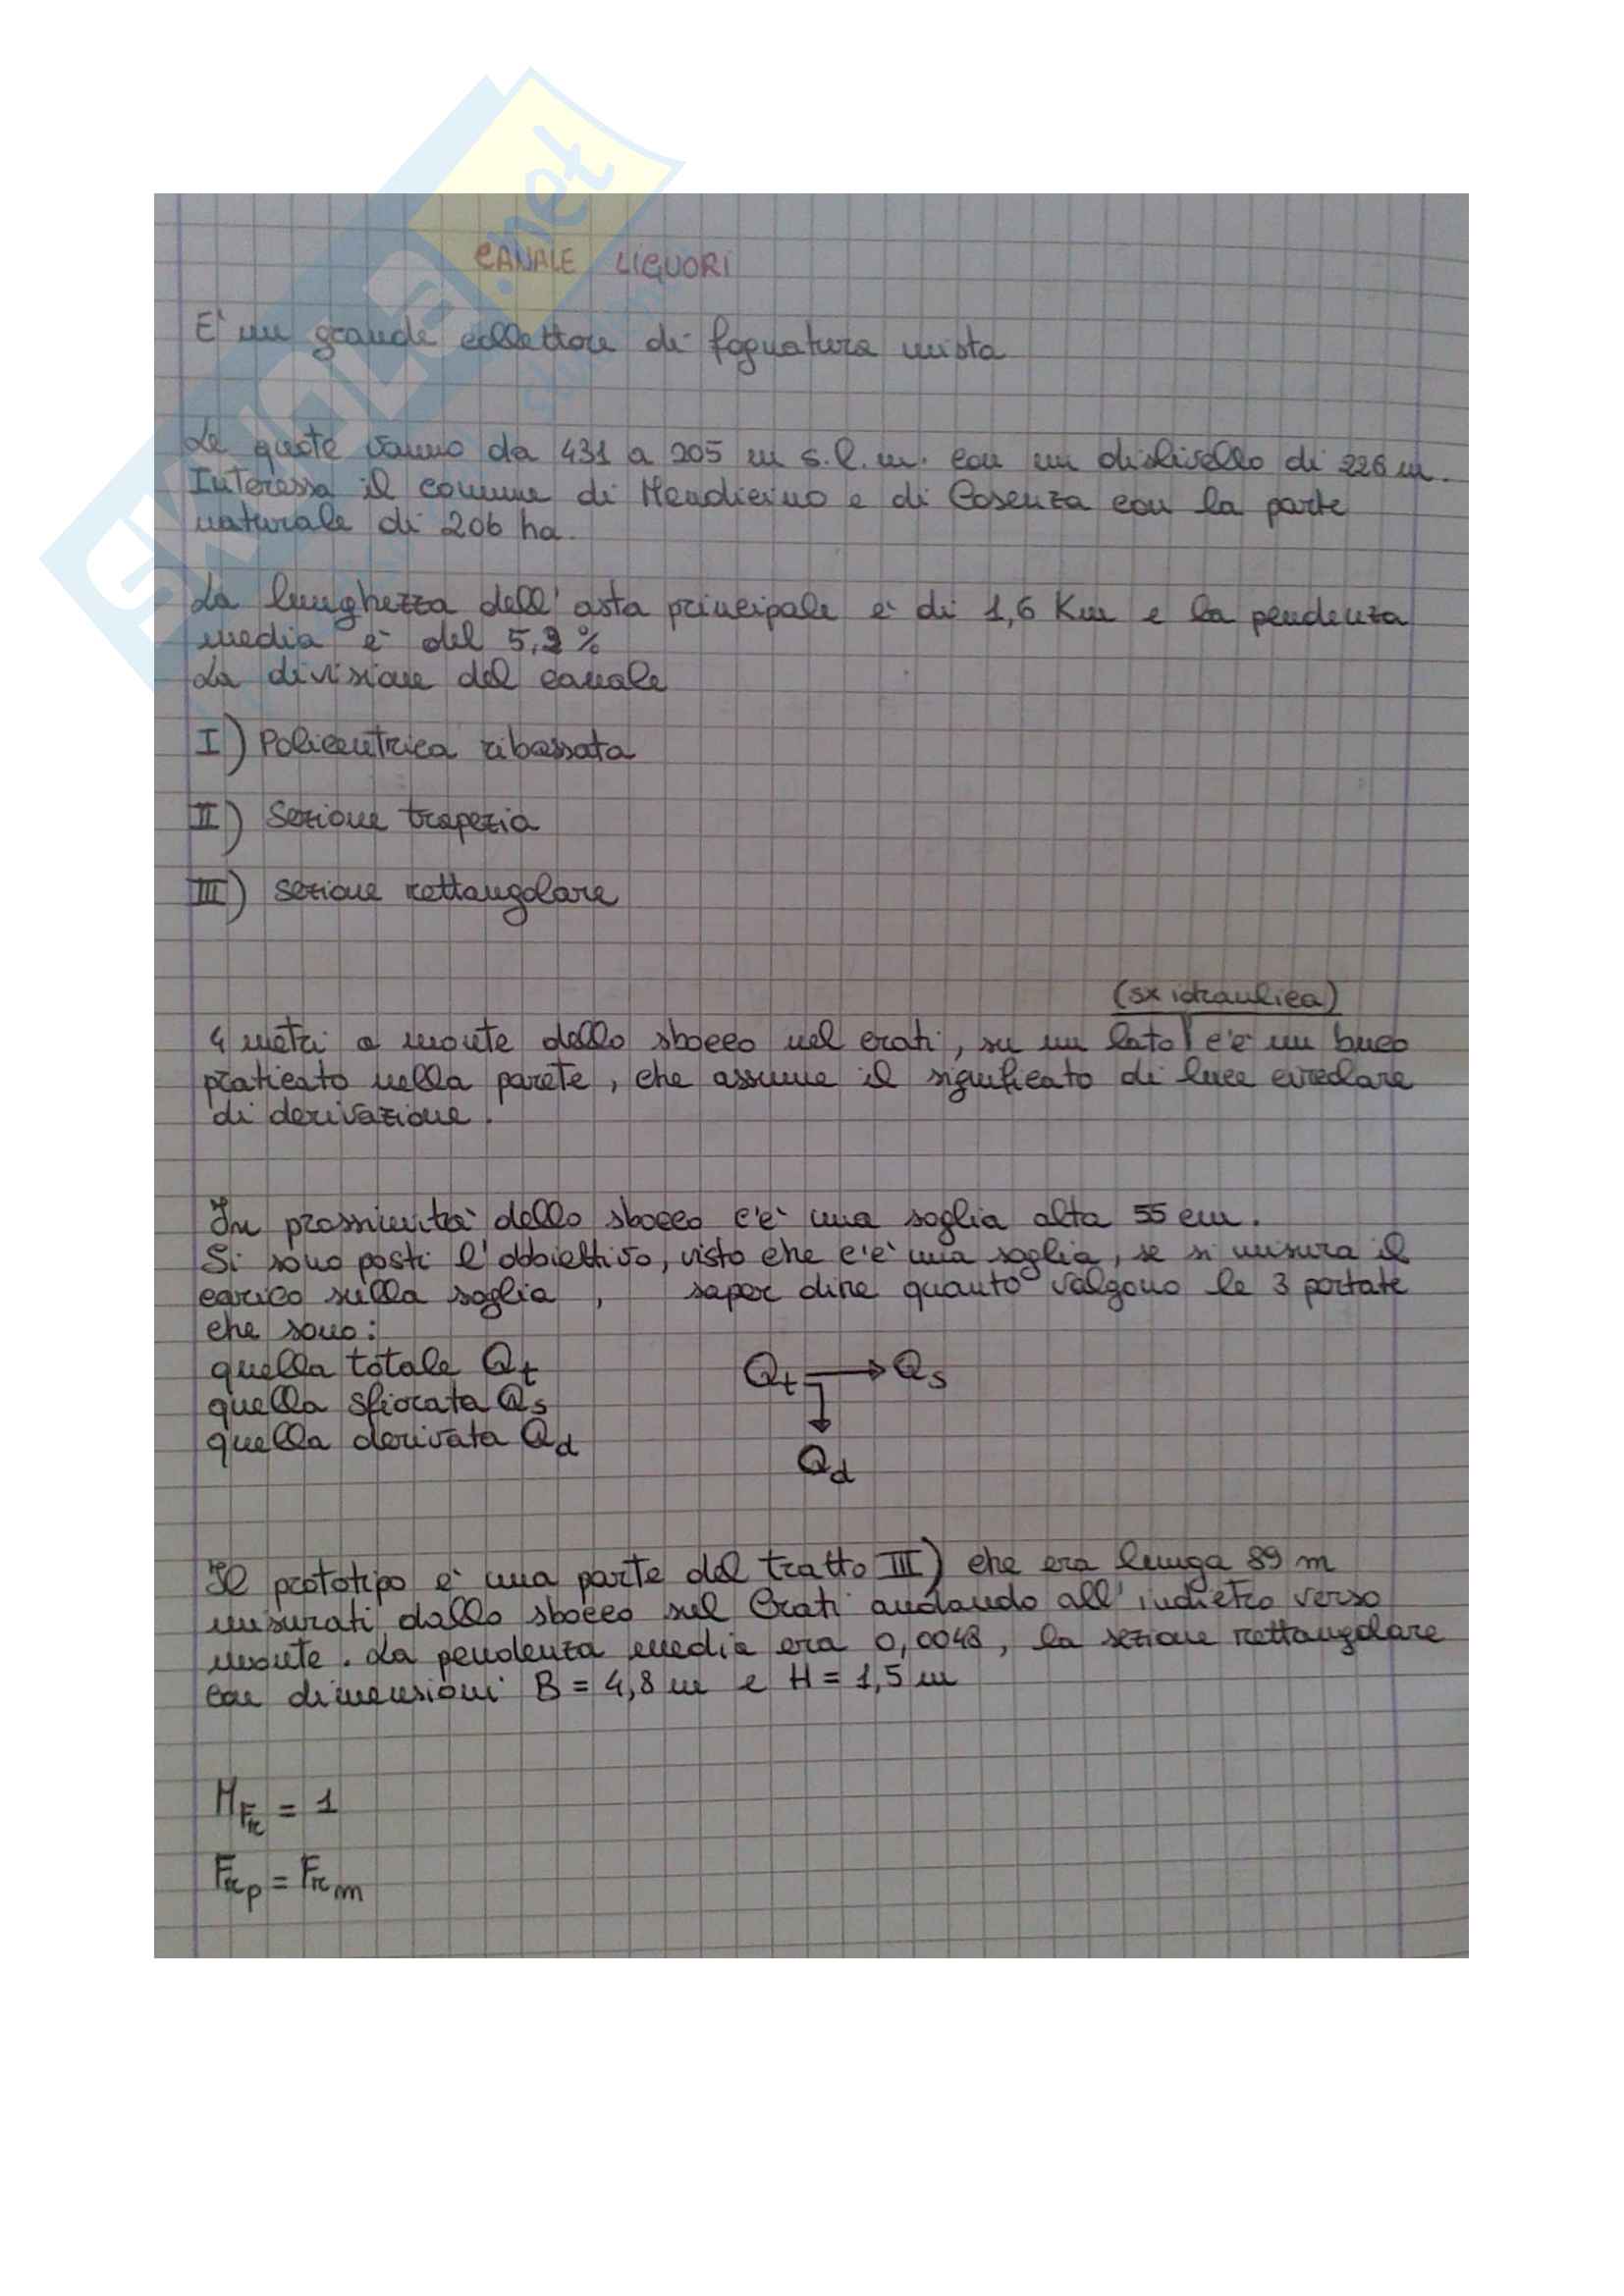 CANALE LIGUORI
E' un grande collettore di fognatura mista
Le quote vanno da 431 a 205 m s.l.m. con un dislivello di 226 m.
Interessa il comune di Mendicino e di Cosenza con la parte
naturale di 206 ha.
La lunghezza dell'asta principale è di 1,6 Km e la pendenza
media è del %
La divisione del canale
I) Policentrica ribassata
II) Sezione trapezia
III) Sezione rettangolare
(sx idraulica)
4 metri a monte dello sbocco nel crati, su un lato c'è un buco
praticato nella parete, che assume il significato di luce circolare
di derivazione.
In prossimità dello sbocco c'è una soglia alta 55 cm.
Si sono posti l'obbiettivo, visto che c'è una soglia, se si misura il
carico sulla soglia, saper dire quanto valgono le 3 portate
che sono:
quella totale Qt
quella sfiorata Qs
quella derivata Qd
Qt → Qs
Qd
Il prototipo è una parte del tratto III) che era lunga 89 m
misurati dallo sbocco sul Crati andando all'indietro verso
monte. La pendenza media era 0,0048, la sezione rettangolare
con dimensioni B = 4,8 m e H = 1,5 m
MFr = 1
Frp = Frm
SKUOLA.net